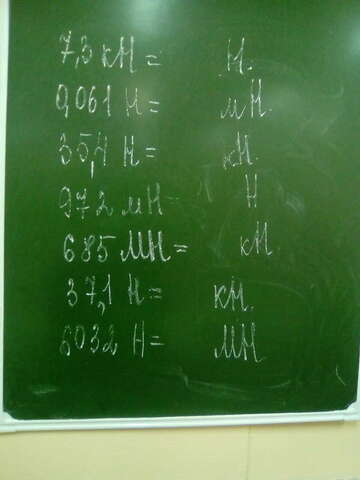 7,3 кН = Н.
0,061 Н = мН.
35,4 Н = кН.
972 мН = Н
685 МН = кН.
37,1 Н = кН.
6032 Н = МН